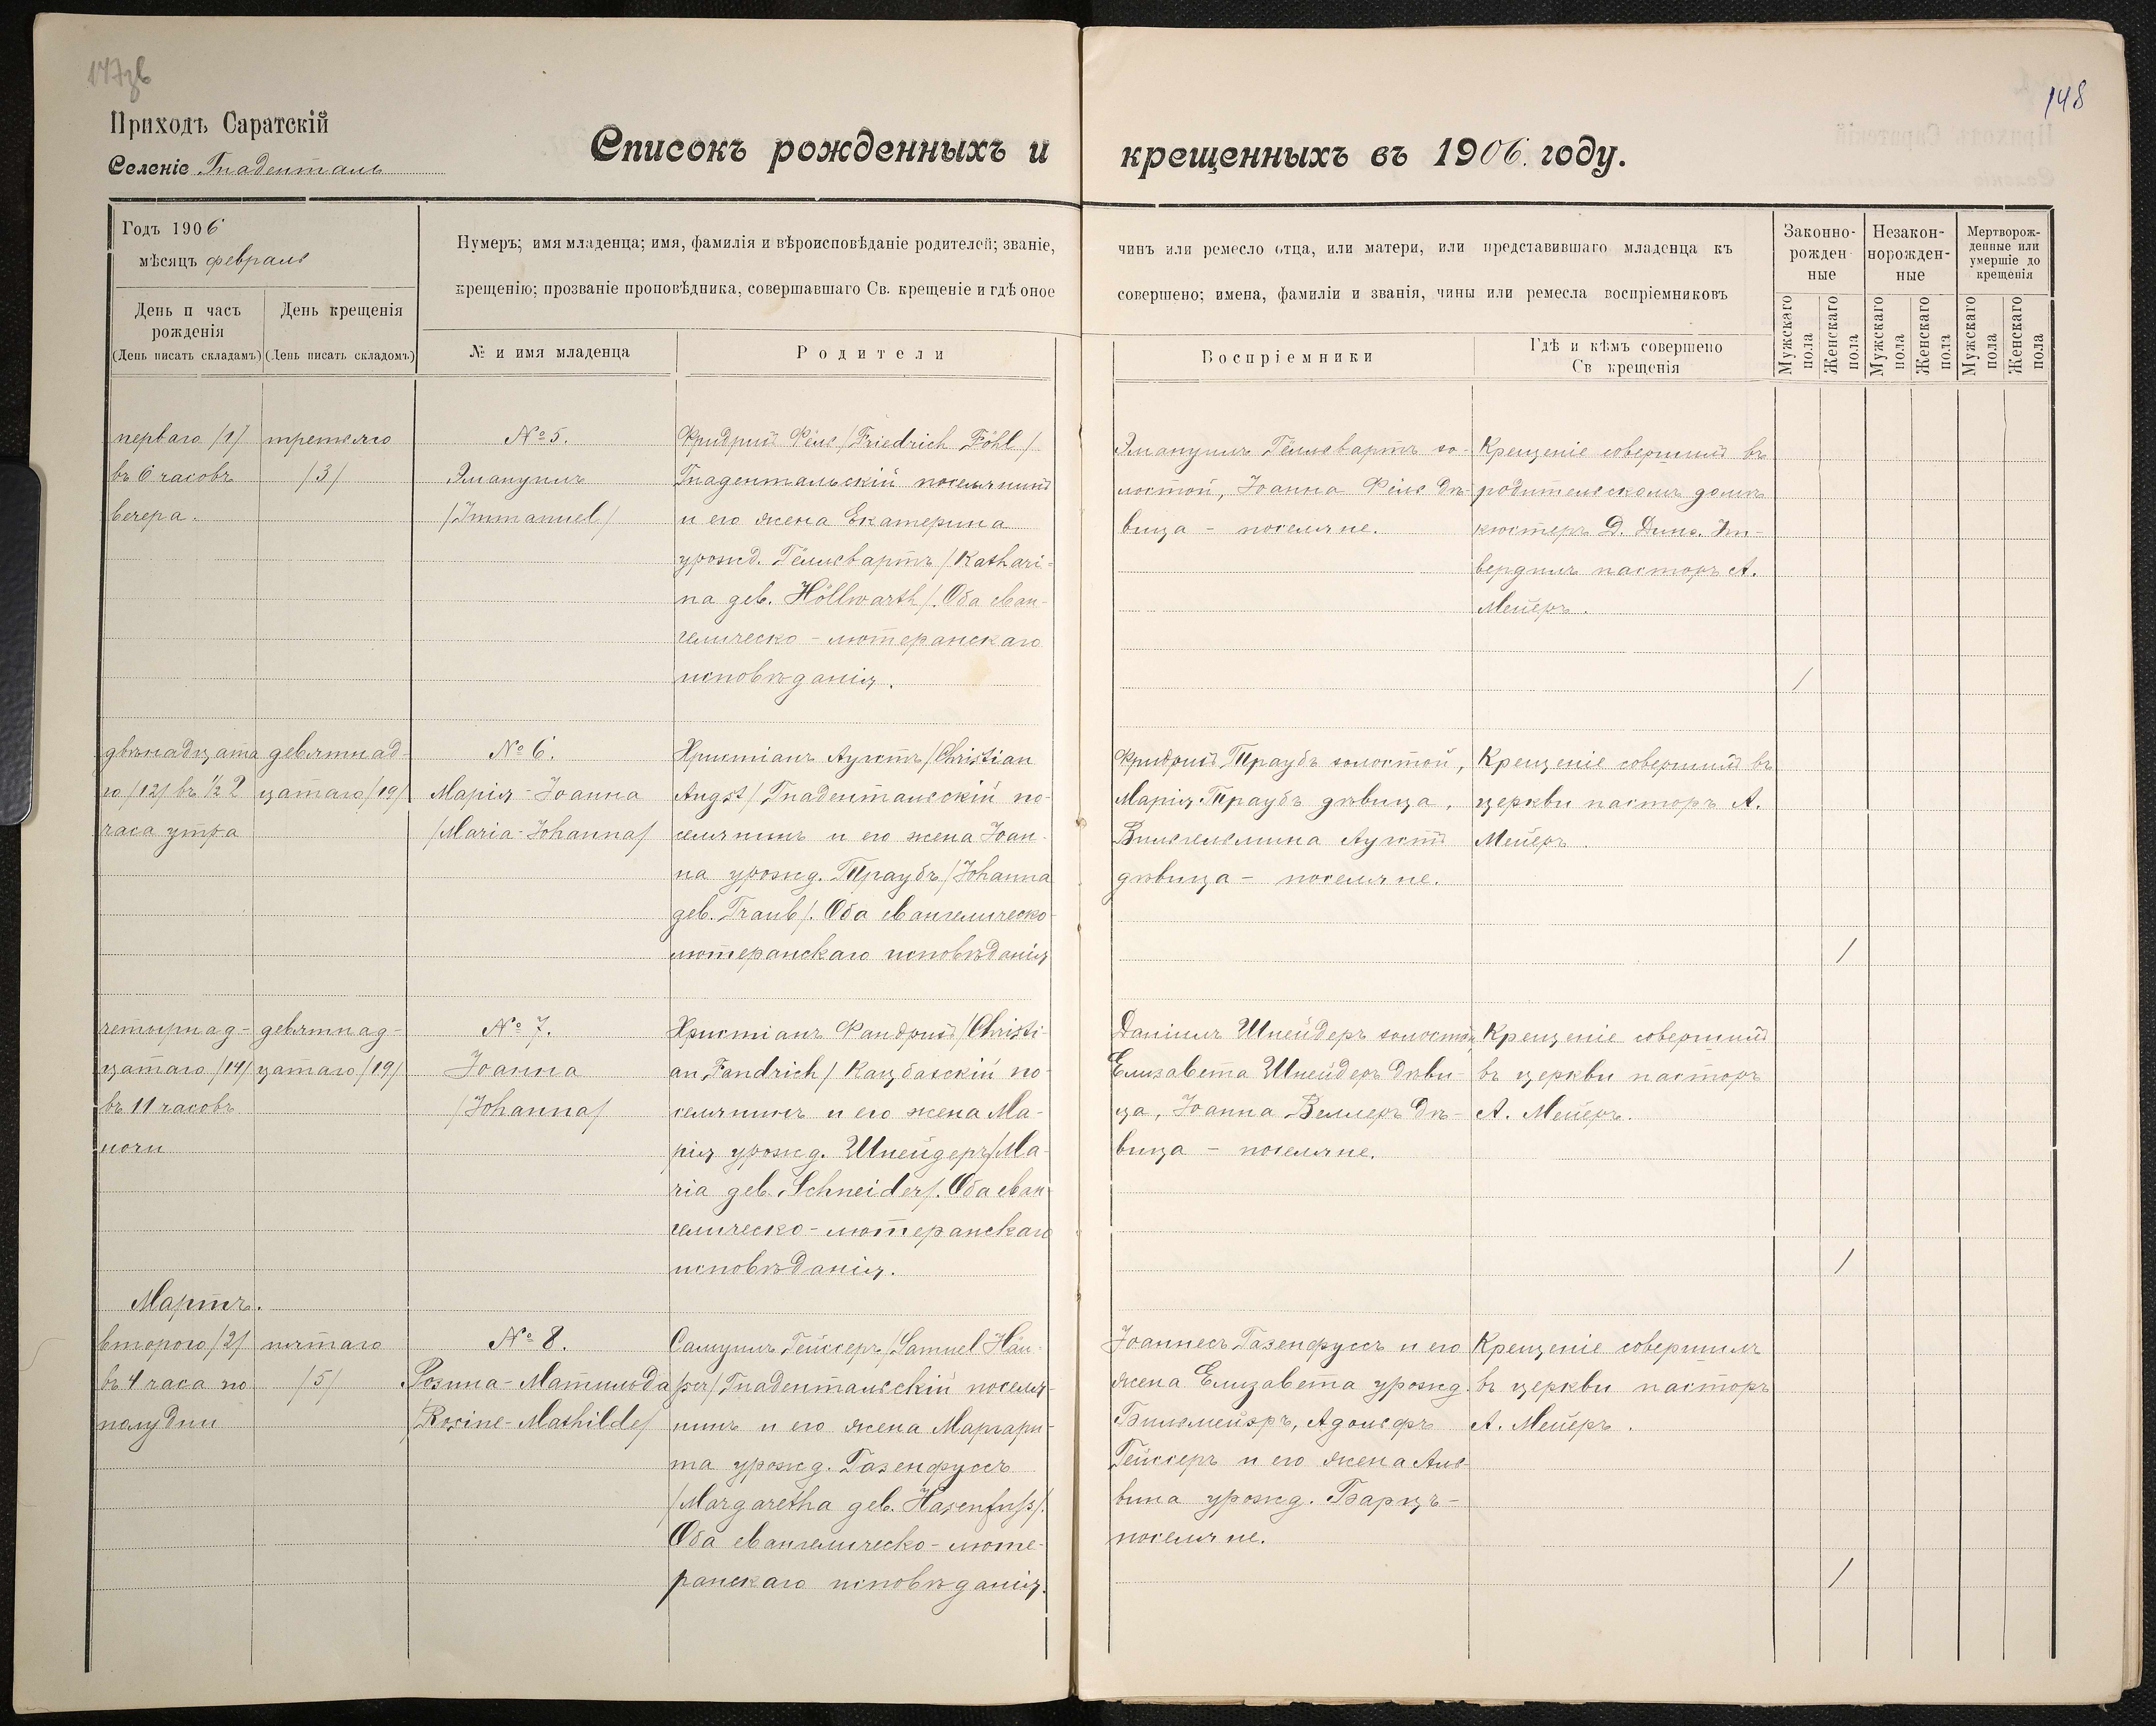 147зв
148
Приходъ Саратскій
Селеніе Гнаденталь
Списокъ рожденныхъ и крещенныхъ въ 1906. году.
Годъ 1906
мѣсяцъ февраль
День п часъ рожденія
(День писать складамъ)
День крещенія
(День писать складомъ)
Нумеръ; имя младенца; имя, фамилія и вѣроисповѣданіе родителей; званіе, чинъ или ремесло отца, или матери, или представившаго младенца къ
крещенію; прозваніе проповѣдника, совершавшаго Св. крещеніе и гдѣ оное совершено; имена, фамиліи и званія, чины или ремесла воспріемниковъ
№ и имя младенца
Родители
Воспріемники
Гдѣ и кѣмъ совершено
Св крещенія
Законно-
рожден
ные
Незакон-
норожден-
ные
Мертворож-
денные или
умершіе до
крещенія
Мужскаго пола
Женскаго пола
Мужскаго пола
Женскаго пола
Мужскаго пола
Женскаго пола
перваго /1/
въ 6 часовъ
вечера.
третьяго
/3/
№ 5.
Эмануилъ
/Immanuel/
Фридрихъ Фёль /Friedrich Föhl/
Гнадентальскій поселянинъ
и его жена Екатерина
урожд. Гёльвартъ /Kathari-
na geb. Höllwarth/. Оба еван-
гелическо-лютеранскаго
исповѣданія.
Эмануилъ Гёльвартъ хо-
лостой, Іоанна Фёль дѣ-
вица - поселяне.
Крещеніе совершилъ въ
родительскомъ домѣ
кюстеръ Д. Утв-
вердилъ пасторъ А.
Мейеръ.
/
двѣнадцата
го /12/ въ ½ 2
часа утра
девятнад-
цатаго /19/
№ 6.
Марія-Іоанна
/Maria-Johanna/
Христіанъ Аугстъ /Christian
Augst/ Гнадентальскій по-
селянинъ и его жена Іоан-
на урожд. Траубъ /Johanna
geb. Traub/. Оба евангелическо-
лютеранскаго исповѣданія
Фридрихъ Траубъ холостой,
Марія Траубъ дѣвица,
Вильгельмина Аугстъ
дѣвица - поселяне.
Крещеніе совершилъ въ
церкви пасторъ А.
Мейеръ.
/
четырнад-
цатаго /14/
въ 11 часовъ
ночи
девятнад-
цатаго /19/
№ 7.
Іоанна
/Johanna/
Христіанъ Фандрихъ /Christi-
an Fandrich/ Кацбахскій по-
селянинъ и его жена Ма-
рія урожд. Шнейдеръ /Ma-
ria geb. Schneider/. Оба еван-
гелическо-лютеранскаго
исповѣданія.
Даніилъ Шнейдеръ холостой,
Елизавета Шнейдеръ дѣви-
ца, Іоанна Веллеръ дѣ-
вица - поселяне.
Крещеніе совершилъ
въ церкви пасторъ
А. Мейеръ.
/
Мартъ.
второго /2/
въ 4 часа по
полудни
пятаго
/5/
№ 8.
Розина-Матильда
/Rosine-Mathilde/
Самуилъ Гейссеръ /Samuel Häu-
ßer/ Гнадентальскій поселя-
нинъ и его жена Маргари-
та урожд. Газенфуссъ
/Margaretha geb. Hasenfuß/.
Оба евангелическо-люте-
ранскаго исповѣданія.
Іоаннесъ Газенфуссъ и его
жена Елизавета урожд.
Бильмейеръ, Адольфъ
Гейссеръ и его жена Аль-
вина урожд. Барцъ -
поселяне.
Крещеніе совершилъ
въ церкви пасторъ
А. Мейеръ.
/